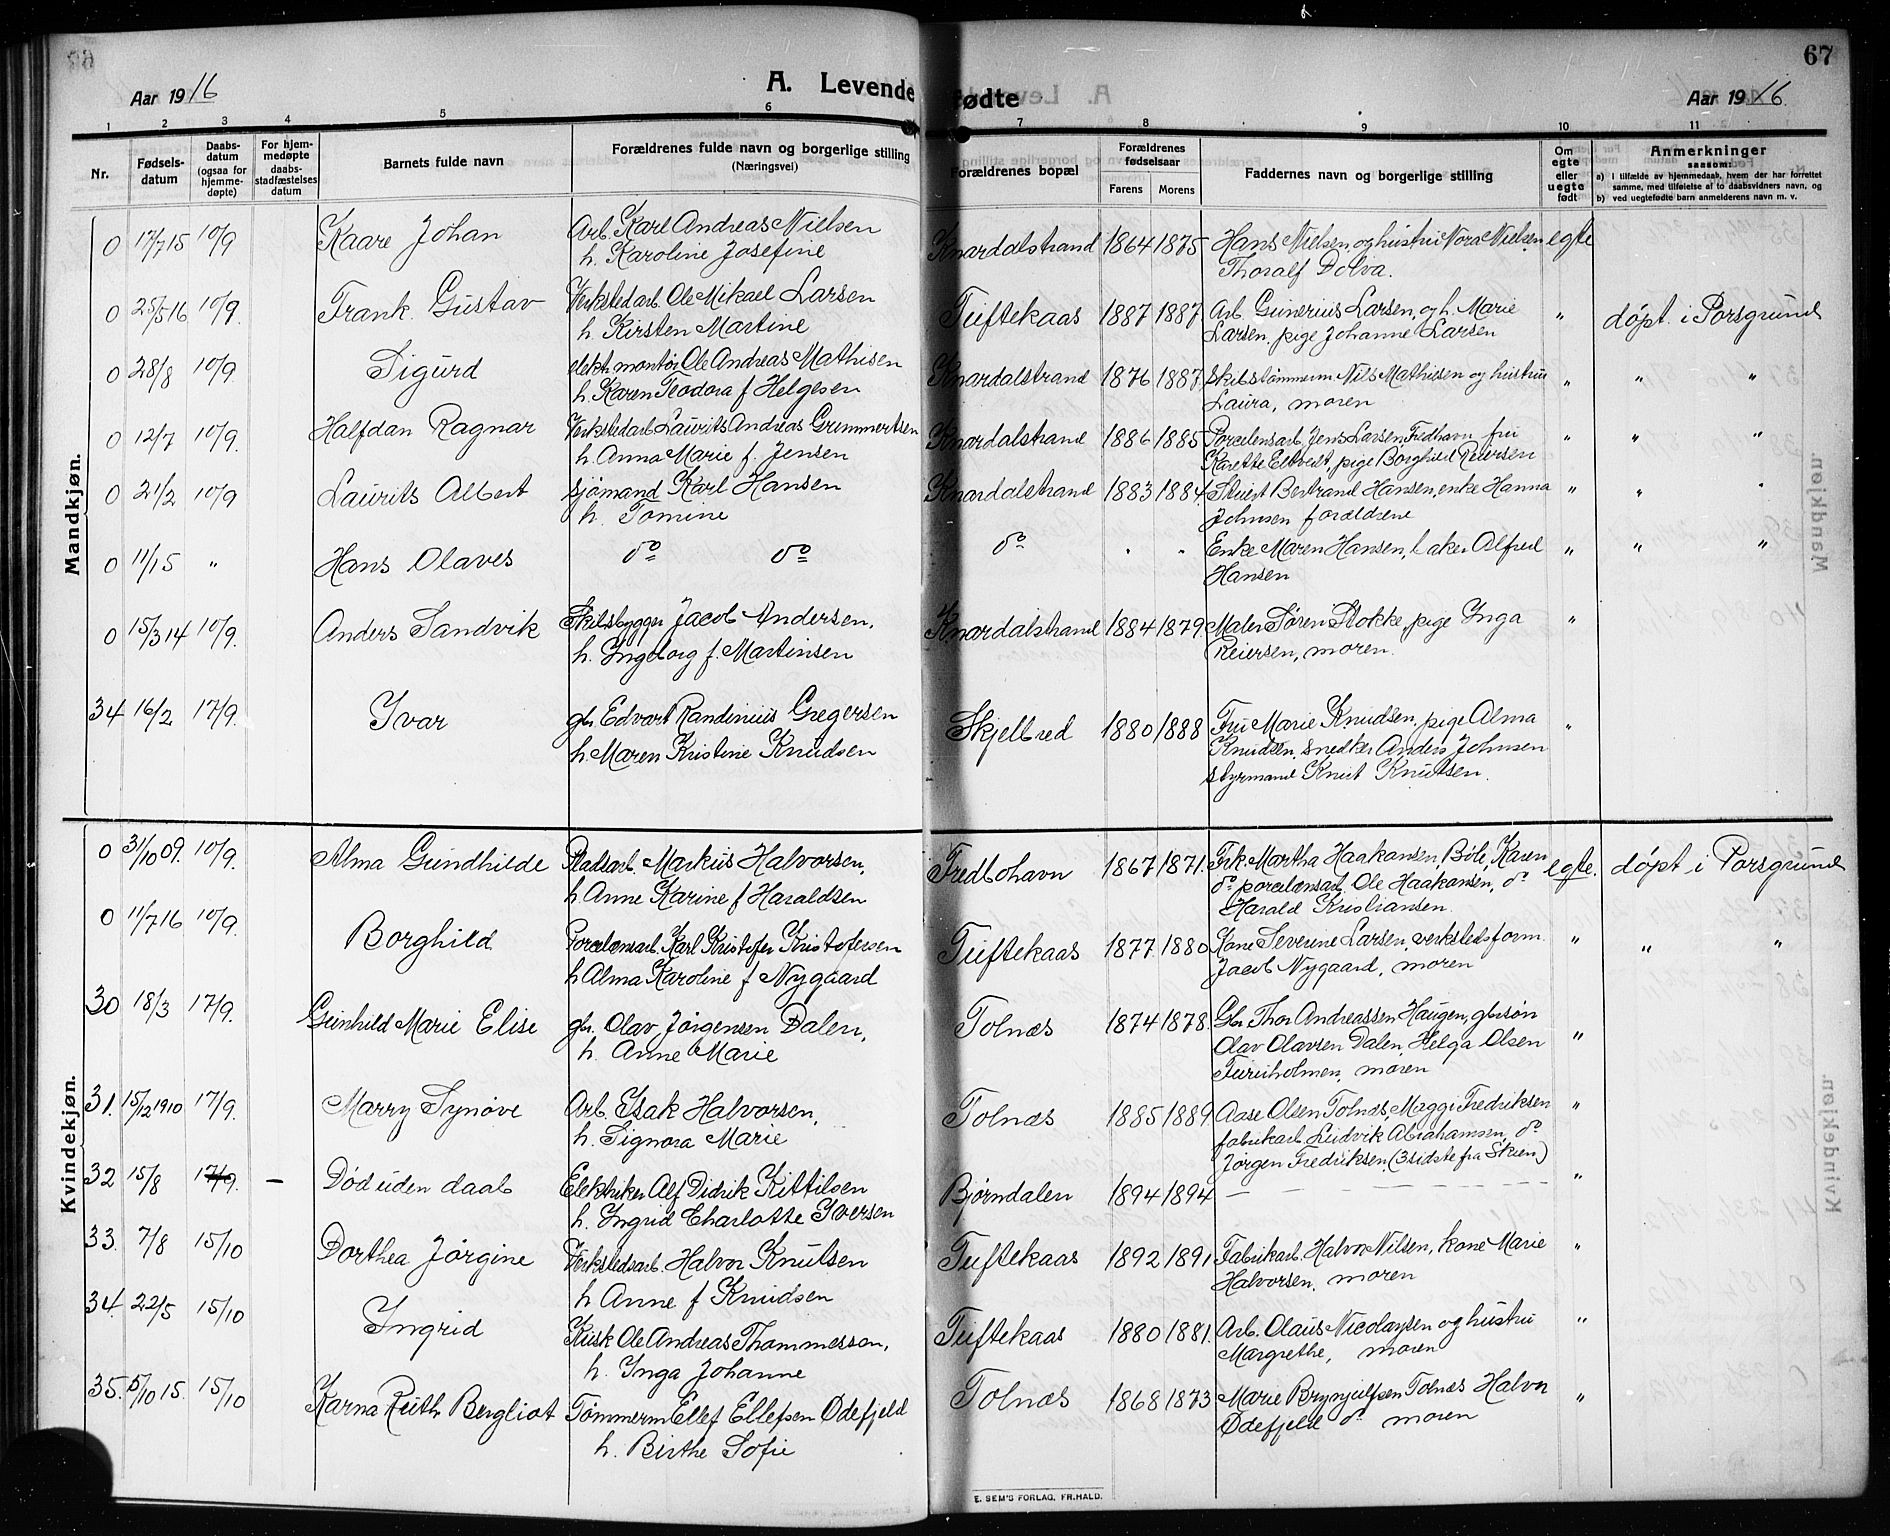 67
Aar 1916 A. Levende fødte Aar 1916.
1 2 3 4 5 6 7 8 9 10 11
Nr. Fødsels-datum Daabs-datum (ogsaa for hjemme-døpte) For hjem-medøpte daabs-stadfæstelses datum Barnets fulde navn Forældrenes fulde navn og borgerlige stilling (Næringsvei) Forældrenes bopæl Forældrenes fødselsaar Farens Morens Faddernes navn og borgerlige stilling Om egte eller uegte født Anmerkninger saasom: a) I tilfælde av hjemmedaab, hvem der har forrettet samme, med tilføielse af to daabsvidners navn, og b) ved uegtefødte barn anmelderens navn m. v.
Mandkjøn.
0 17/7 15 10/9 Kaare Johan Arb. Karl Andreas Nielsen Knardalstrand 1864 1875 Hans Nielsen og hustru Nora Nielsen egte
h. Karoline Josefine Thoralf Dolva.
0 25/5 16 10/9. Frank Gustav Verkstedarb. Ole Mikael Larsen Tuftekaas 1887 1887 Arb. Gunerius Larsen, og h. Marie " døpt i Porsgrund
h. Kirsten Martine Larsen, pige Johanne Larsen
0 28/8 10/9. Sigurd elektr. montør Ole Andreas Mathisen Knardalstrand 1876 1887 Skibstømmerm Nils Mathisen og hustru " " "
h. Karen Teodora f Helgesen Laura, moren
0 12/7 10/9. Halfdan Ragnar Verkstedarb. Laurits Andreas Gremmertsen Knardalstrand 1886 1885 Porcelensarb. Jens Larsen Fredhavn fru " " "
h. Anna Marie f. Jensen Karette Eltvedt, pige Borghild Reiersen
0 21/2 10/9 Laurits Albert sjømand Karl Hansen Knardalstrand 1883 1884. Stuert Bertrand Hansen, enke Hanna " " "
h. Tomine Johnsen forældrene
0 11/15 " Hans Olaves do do do " " Enke Maren Hansen, baker Alfred " " "
Hansen
0 15/3 14 10/9. Anders Sandvik Skibsbygger Jacob Andersen, Knardalstrand 1884 1879 Maler Søren Stokke, pige Inga "
h. Ingeborg f. Martinsen Reiersen, moren.
34 16/2 17/9. Ivar gbr Edvart Randinius Gregersen Skjelbred 1880 1888 Fru Marie Knudsen, pige Alma "
h. Maren Kristine Knudsen Knudsen, snedker Anders Johnsen
styrmand Knut Knutsen.
Kvindekjøn.
0 31/10 09. 10/9. Alma Gundhilde Pladsarb. Markus Halvorsen, Fredbohavn 1867 1871. Frk Martha Haakonsen, Bøle, Karen egte. døpt i Porsgrund
h. Anne Karine f Haraldsen do porcelænsarb. Ole Haakonsen, do
Harald Kristiansen.
0 11/7 16 10/9. Borghild Porcelensarb. Karl Kristofer Kristofersen Tuftekaas 1877 1880 Kone Severine Larsen, verkstedsform. " " "
h Alma Karoline f Nygaard Jacob Nygaard, moren
30 18/3 17/9. Gunhild Marie Elise gbr. Olav Jørgensen Dalen, Tolnæs 1874 1878. Gbr Thor Andreassen Haugen, gbrsøn "
h. Anne Marie Olav Olavsen Dalen, Helga Olsen
Furuholmen, moren
31. 15/12 1910 17/9. Marry Synøve Arb. Esak Halvorsen, Tolnæs 1885 1889 Aase Olsen Tolnæs, Maggi Fredriksen "
h. Signora Marie fabrikarb. Ludvik Abrahamsen, do
Jørgen Fredriksen (3 sidste fra Skien)
32 15/8 17/9. - Død uden daab Elektriker Alf Didrik Kittilsen Bjørndalen 1894 1894 - "
h. Ingrid Charlotte Iversen
33. 7/8 15/10 Dorthea Jørgine Verkstedsarb. Halvor Knutsen Tuftekaas 1892 1891 Fabrikarb. Halvor Nilsen, kone Marie "
h Anne f Knudsen Halvorsen, moren
34. 22/5 15/10 Ingrid Kusk Ole Andreas Thommessen, Tuftekaas 1880 1881. Arb. Olaus Nicolaysen og hustru "
h. Inga Johanne Margrethe, moren
35. 5/10 15. 15/10 Karna Ruth Bergliot Tømmerm Ellef Ellefsen Ødefjeld Tolnæs 1868 1873 Marie Brynjulfsen Tolnæs Halvor "
h. Birthe Sofie Ødefjeld do moren
E. SEM'S FORLAG, FR.HALD.